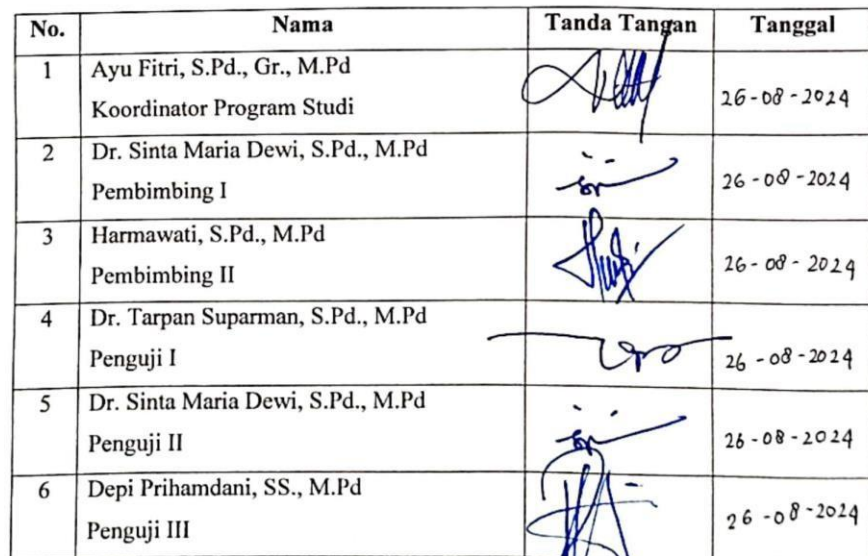 No. Nama Tanda Tangan Tanggal
1 Ayu Fitri, S.Pd., Gr., M.Pd
Koordinator Program Studi 26-08-2024
2 Dr. Sinta Maria Dewi, S.Pd., M.Pd
Pembimbing I 26-08-2024
3 Harmawati, S.Pd., M.Pd
Pembimbing II 26-08-2024
4 Dr. Tarpan Suparman, S.Pd., M.Pd
Penguji I 26-08-2024
5 Dr. Sinta Maria Dewi, S.Pd., M.Pd
Penguji II 26-08-2024
6 Depi Prihamdani, SS., M.Pd
Penguji III 26-08-2024